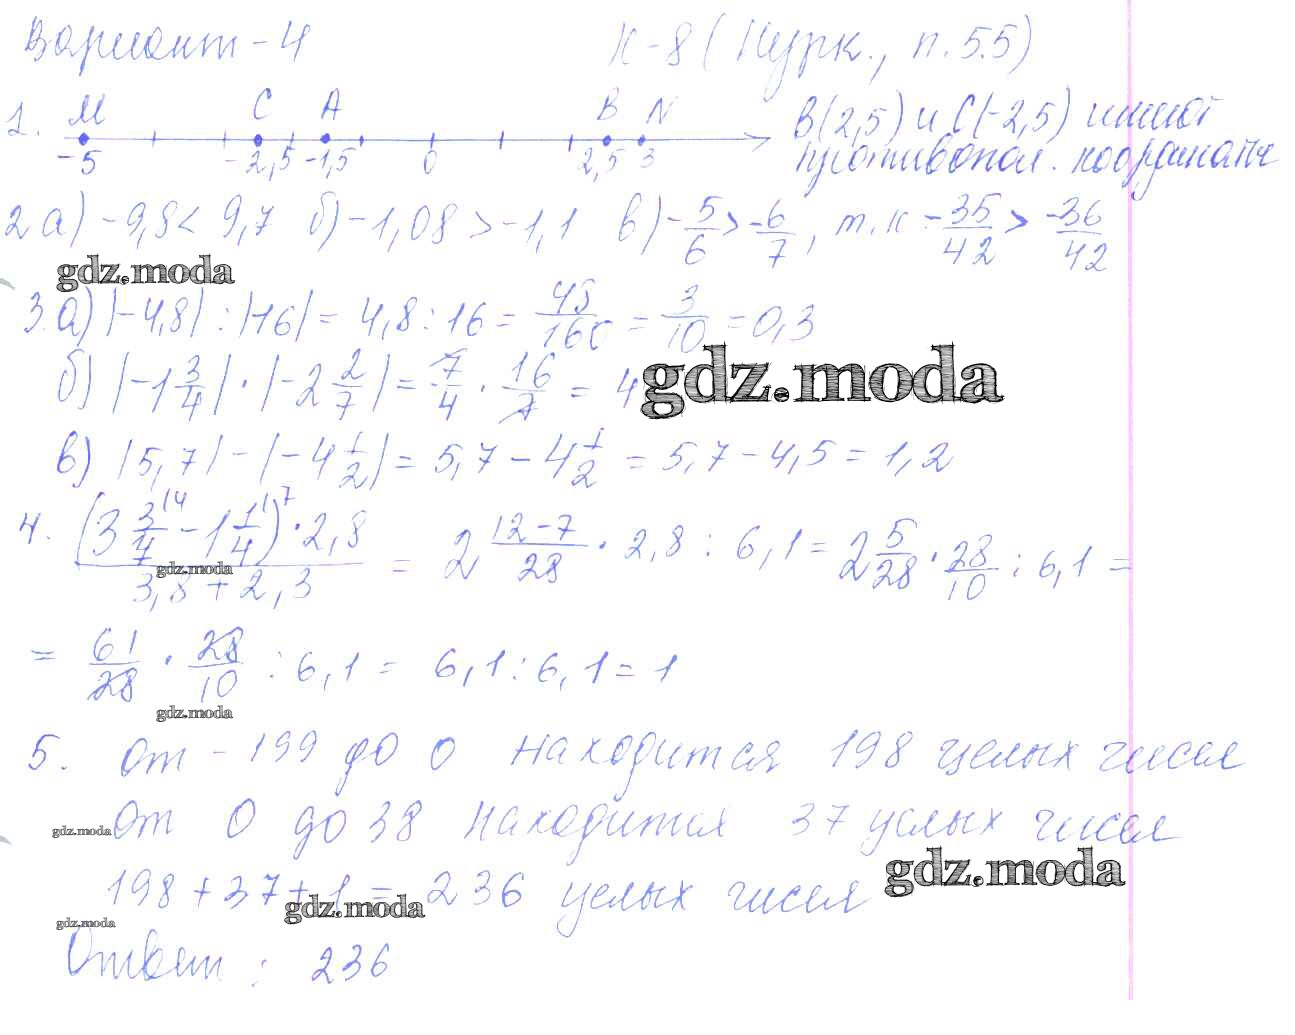 Вариант - 4 К-8 (Нурк., п.5.5)
1. M C A B N B(2,5) и C(-2,5) имеют
-5 -2,5 -1,5 0 2,5 3 противопол. координаты
2 а) -9,8 < 9,7 б) -1,08 > -1,1 в) -5/6 > -6/7, т.к -35/42 > -36/42
gdz.moda
3. а) |-4,8| : |-16| = 4,8 : 16 = 48/160 = 3/10 = 0,3
б) |-1 3/4| · |-2 2/7| = 7/4 · 16/7 = 4
gdz.moda
в) |5,7| - |-4 1/2| = 5,7 - 4 1/2 = 5,7 - 4,5 = 1,2
4. (3 3/7 - 1 1/4) · 2,8 / 3,8 + 2,3 = 2 12-7/28 · 2,8 : 6,1 = 2 5/28 · 28/10 : 6,1 =
gdz.moda
= 61/28 · 28/10 : 6,1 = 6,1 : 6,1 = 1
gdz.moda
5. От -199 до 0 находится 198 целых чисел
gdz.moda
От 0 до 38 находится 37 целых чисел
198 + 37 + 1 = 236 целых чисел
gdz.moda
gdz.moda
gdz.moda
Ответ: 236